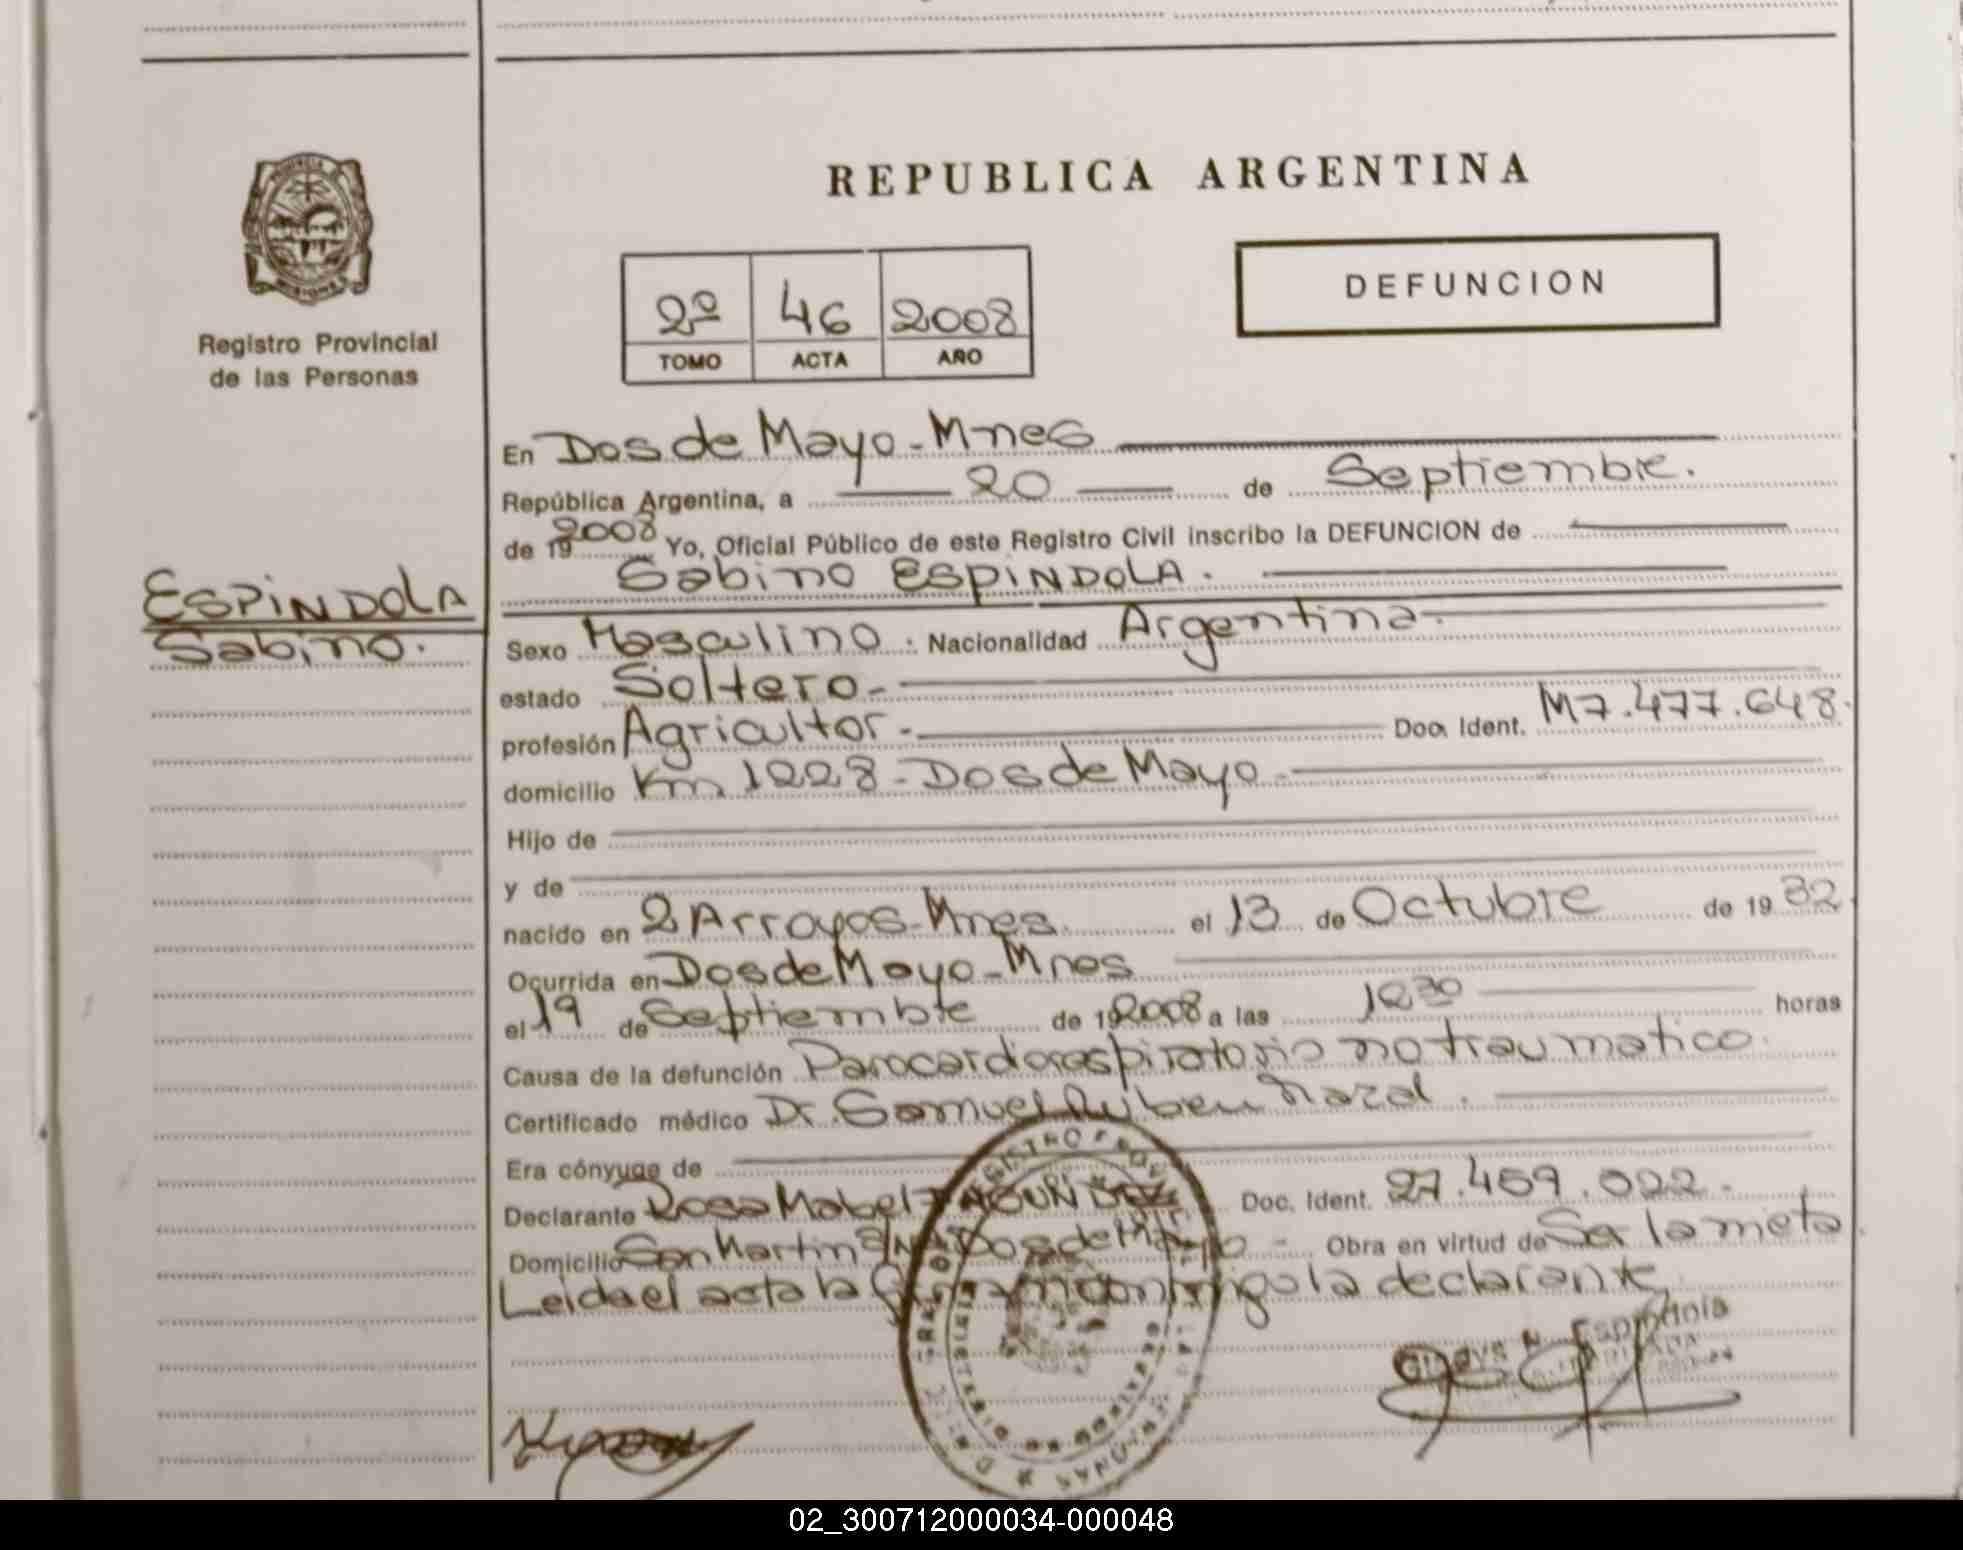 REPUBLICA ARGENTINA
Registro Provincial
de las Personas
2º 46 2008
TOMO ACTA AÑO
DEFUNCION
ESPINDOLA
Sabino.
En Dos de Mayo - Mnes
República Argentina, a 20 de Septiembre.
de 19 2008 Yo, Oficial Público de este Registro Civil inscribo la DEFUNCION de
Sabino ESPINDOLA.
Sexo Masculino. Nacionalidad Argentina
estado Soltero
profesión Agricultor Doc. Ident. M7.477.648.
domicilio Km 1228 - Dos de Mayo
Hijo de
y de
nacido en 2 Arroyos - Mnes. el 13 de Octubre de 19 32.
Ocurrida en Dos de Mayo - Mnes
el 19 de Septiembre de 19 2008 a las 12 30 horas
Causa de la defunción Parocardiorespiratorio no traumatico.
Certificado médico Dr. Samuel Ruben Nazal.
Era cónyuge de
Declarante Rosa Mabel Doc. Ident. 27.459.022.
Domicilio San Martin S/N Dos de Mayo - Obra en virtud de Ser la nieta.
Leida el acta la firma conmigo la declarante
Espindola
02_300712000034-000048